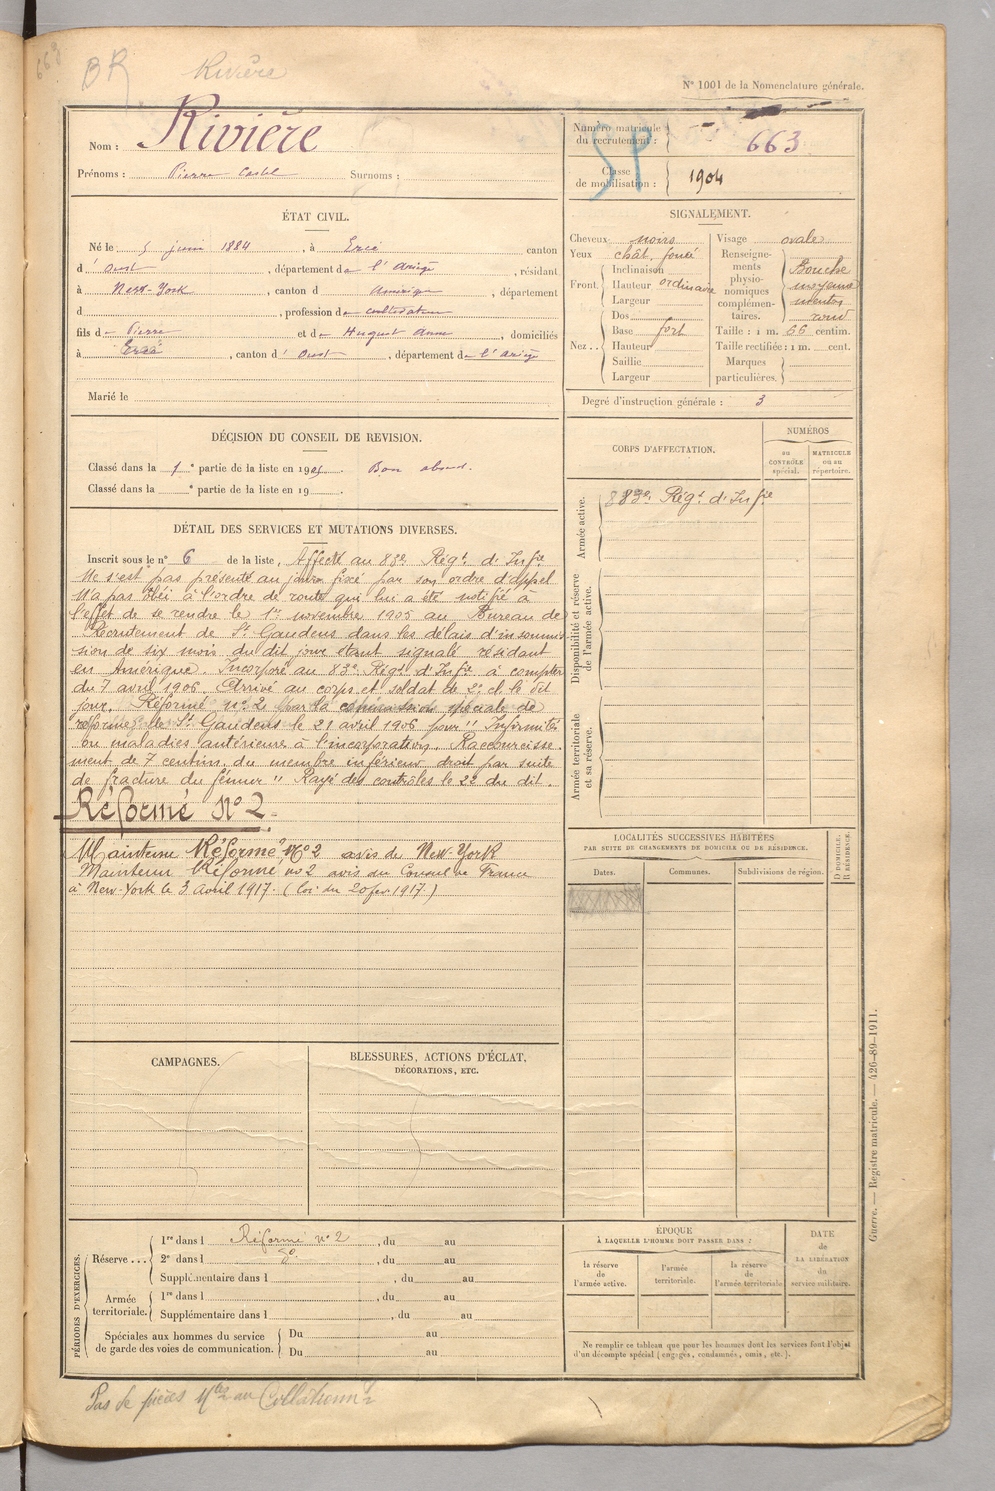 663
BR Rivière
N° 1001 de la Nomenclature générale.
Nom : Rivière
Prénoms : Pierre Castel Surnoms :
Numéro matricule du recrutement : 663
Classe de mobilisation : 1904
SP
ÉTAT CIVIL.
Né le 5 juin 1884, à Ercé canton
d'Oust, département de l'Ariège, résidant
à New-York, canton d Amérique, département
d , profession de cultivateur
fils de Pierre et de Huguet Anne, domiciliés
à Ercé, canton d'Oust, département de l'Ariège
Marié le
SIGNALEMENT.
Cheveux noirs
Yeux chât. foncé
Front Inclinaison
Hauteur ordinaire
Largeur
Nez Dos
Base fort
Hauteur
Saillie
Largeur
Visage ovale
Renseignements physionomiques complémentaires. Bouche moyenne menton rond
Taille : 1 m. 66 centim.
Taille rectifiée : 1 m. cent.
Marques particulières.
Degré d'instruction générale : 3
DÉCISION DU CONSEIL DE REVISION.
Classé dans la 1e partie de la liste en 1905. Bon absent.
Classé dans la e partie de la liste en 19 .
DÉTAIL DES SERVICES ET MUTATIONS DIVERSES.
Inscrit sous le n° 6 de la liste, Affecté au 83e Régt d'Infie
Ne s'est pas présenté au jour fixé par son ordre d'appel
N'a pas obéi à l'ordre de route qui lui a été notifié à
l'effet de se rendre le 1er novembre 1905 au Bureau de
Recrutement de St Gaudens dans les délais d'insoumis-
sion de six mois du dit jour étant signalé résidant
en Amérique. Incorporé au 83e Régt d'Infie à compter
du 7 avril 1906. Arrivé au corps et soldat de 2e cl. le dit
jour. Réformé n° 2 par la commission spéciale de
réforme de St Gaudens le 21 avril 1906 pour " Infirmités
ou maladies antérieures à l'incorporation. Raccourcisse-
ment de 7 centim. du membre inférieur droit par suite
de fracture du fémur " Rayé des contrôles le 22 du dit.
Réformé N° 2
Maintenu Réformé N° 2 avis de New-York
Maintenu Réformé n° 2 avis du Consul de France
à New-York le 3 avril 1917. (Loi du 20 fév. 1917.)
CORPS D'AFFECTATION.
NUMÉROS
au CONTRÔLE spécial.
MATRICULE ou au répertoire.
Armée active.
83e Régt d'Infie
Disponibilité et réserve de l'armée active.
Armée territoriale et sa réserve.
LOCALITÉS SUCCESSIVES HABITÉES
PAR SUITE DE CHANGEMENTS DE DOMICILE OU DE RÉSIDENCE.
Dates. Communes. Subdivisions de région.
D DOMICILE.
R RÉSIDENCE.
CAMPAGNES.
BLESSURES, ACTIONS D'ÉCLAT,
DÉCORATIONS, ETC.
PÉRIODES D'EXERCICES.
Réserve... 1re dans l Réformé n° 2, du au
2e dans l do, du au
Supplémentaire dans l , du au
Armée territoriale. 1re dans l , du au
Supplémentaire dans l , du au
Spéciales aux hommes du service de garde des voies de communication. Du au
Du au
ÉPOQUE
À LAQUELLE L'HOMME DOIT PASSER DANS :
la réserve de l'armée active.
l'armée territoriale.
la réserve de l'armée territoriale
DATE de LA LIBÉRATION du service militaire.
Ne remplir ce tableau que pour les hommes dont les services font l'objet
d'un décompte spécial (engagés, condamnés, omis, etc.).
Guerre. — Registre matricule. — 426-89-1911.
Pas de pièces Mles au